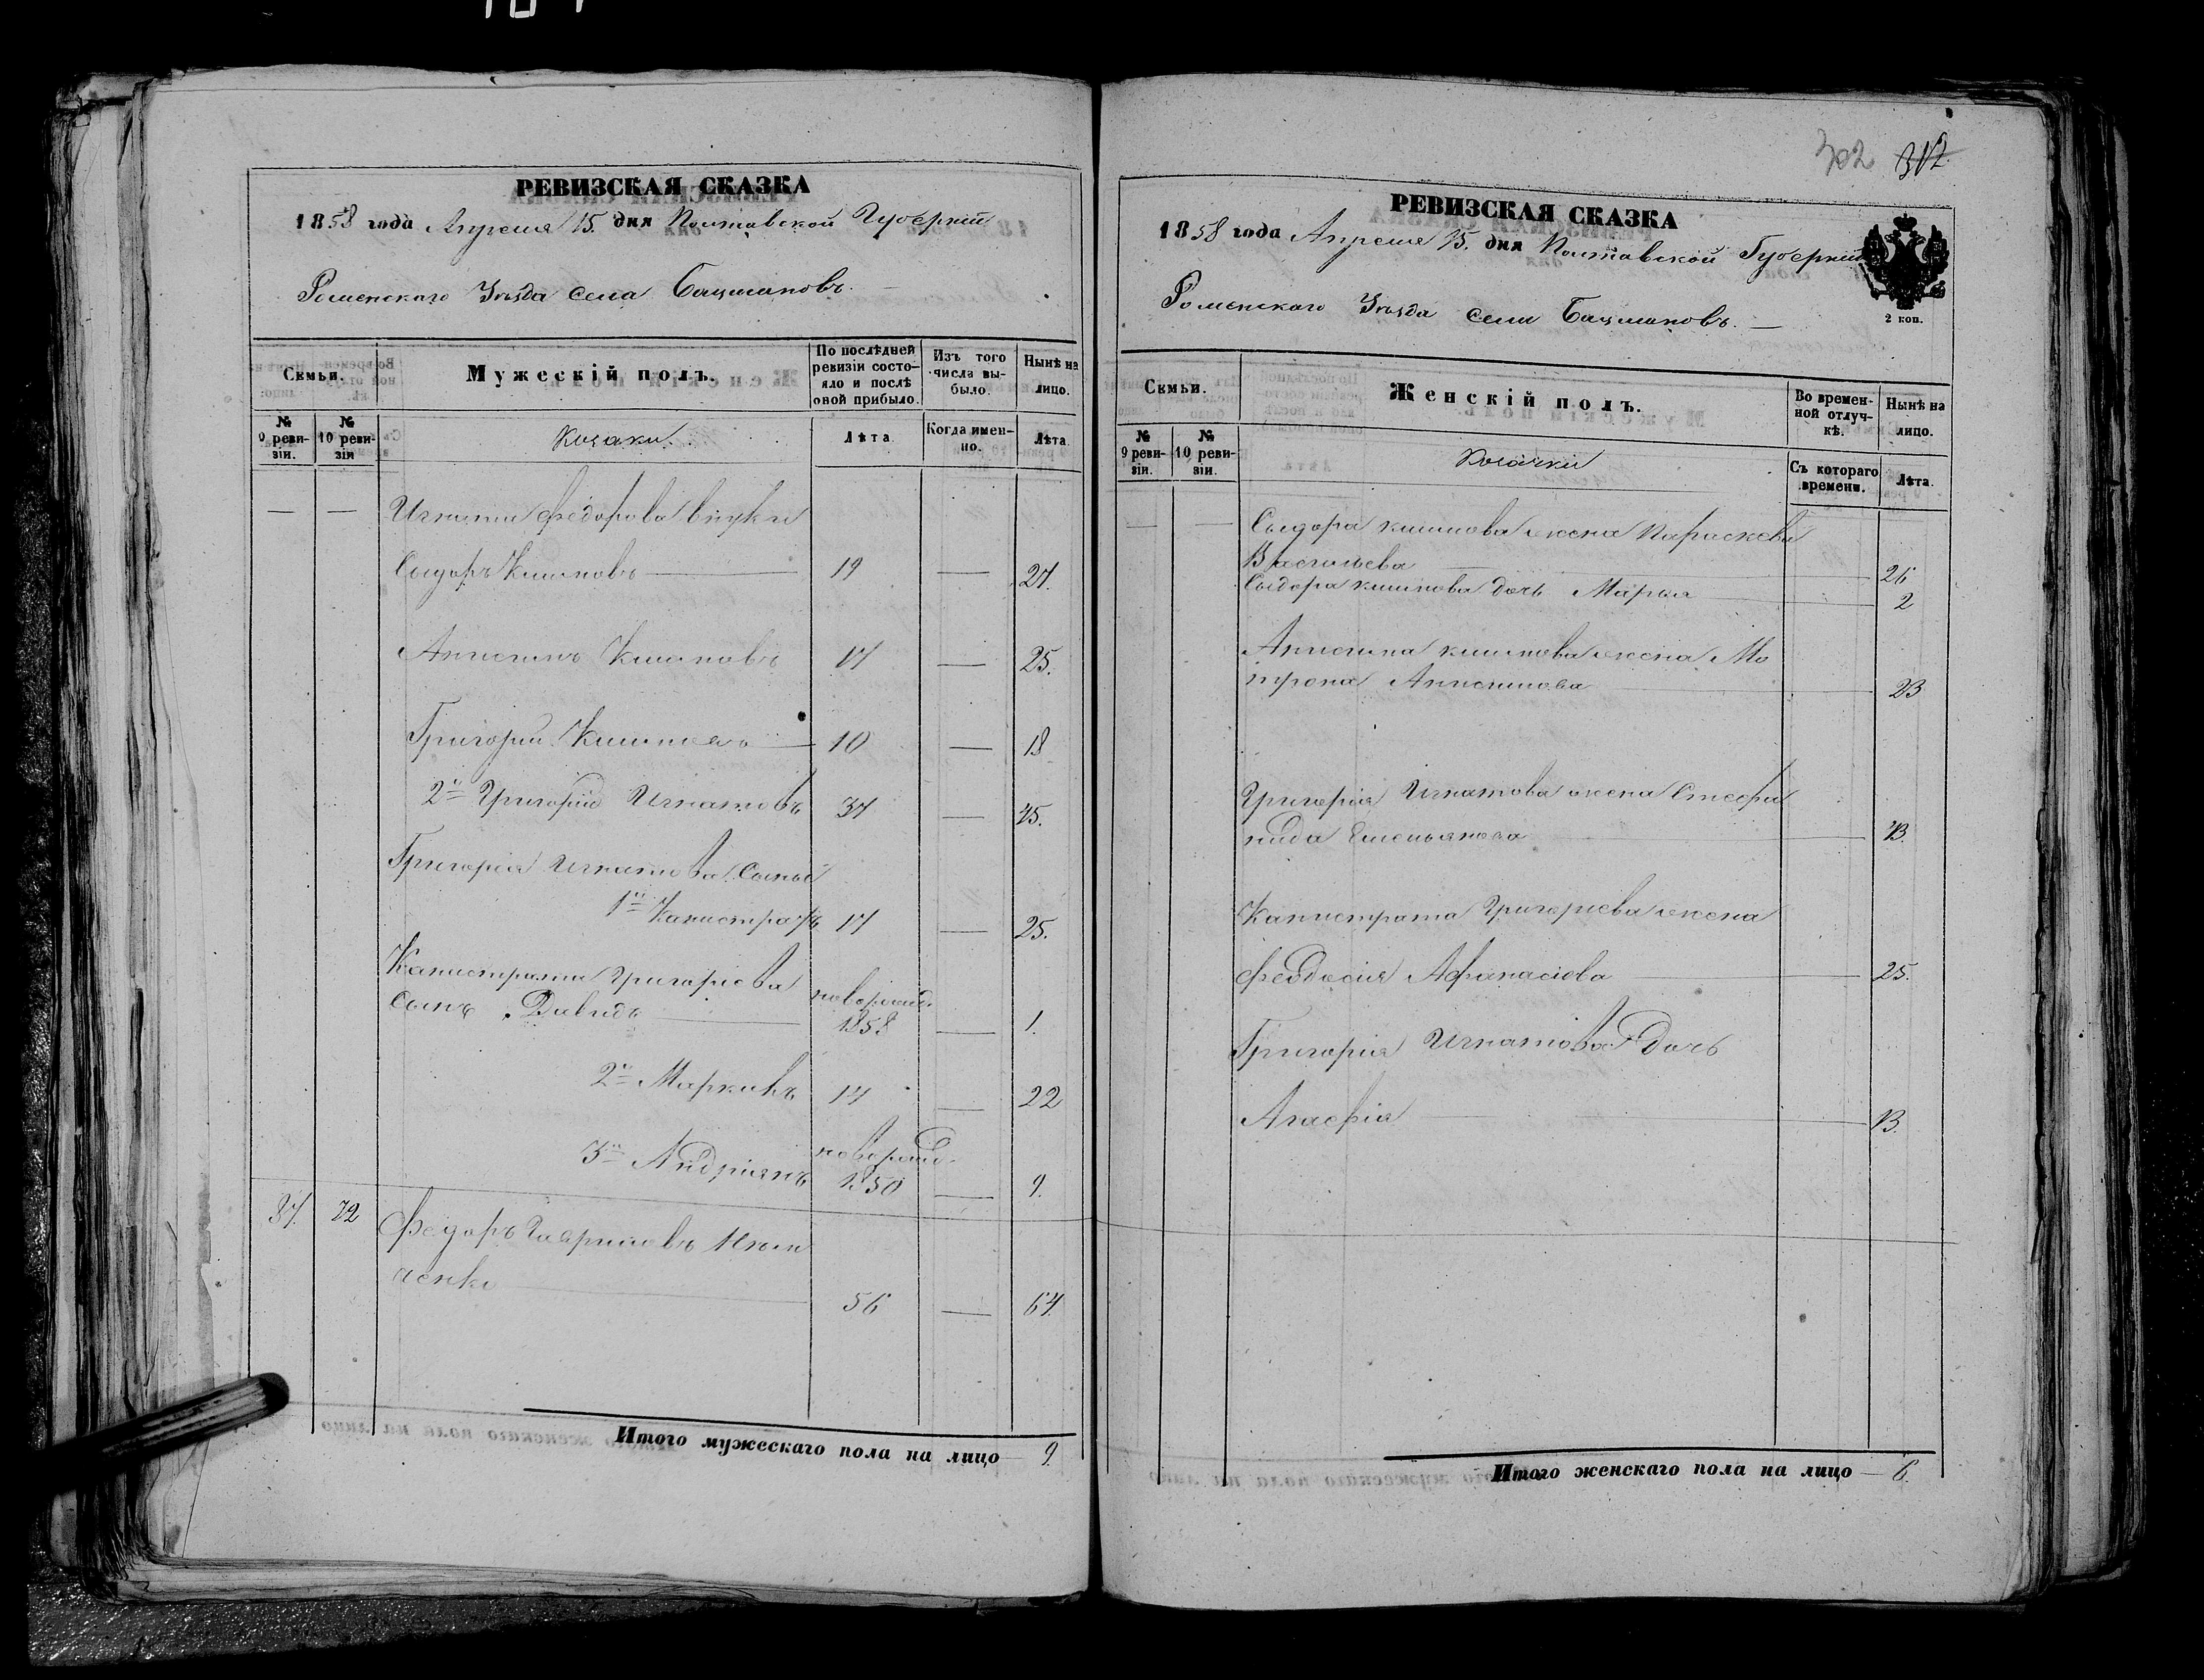 РЕВИЗСКАЯ СКАЗКА
1858 года Апреля 15. дня Полтавской Губерніи
Роменскаго Уѣзда села Бацмановъ.
Семьи.
Мужескій полъ.
По послѣдней ревизіи состояло и послѣ оной прибыло.
Изъ того числа выбыло.
Нынѣ на лицо.
№ 9 ревизіи.
№ 10 ревизіи
Козаки.
Лѣта.
Когда именно.
Лѣта.
Игната Федорова внуки
Сыдоръ Климовъ 19 — 27.
Анисимъ Климовъ 17 — 25.
Григорій Климовъ 10 — 18
2й Григорій Игнатовъ 37 — 45.
Григорія Игнатова сыны
1й Калистратъ 17 — 25.
Калистрата Григоріева новорожд.
сынъ Давидъ 1858 — 1.
2й Маркиянъ 14 — 22
3й Андріянъ новорожд. 1850 — 9.
87. 72 Федоръ Гавриловъ
ченко 56 — 64.
Итого мужескаго пола на лицо 9.
302 312.
РЕВИЗСКАЯ СКАЗКА
1858 года Апреля 15. дня Полтавской Губерніи
Роменскаго Уѣзда села Бацмановъ.
2 коп.
Семьи.
Женскій полъ.
Во временной отлучкѣ.
Нынѣ на лицо.
№ 9 ревизіи.
№ 10 ревизіи.
Козачки
Съ котораго времени.
Лѣта.
Сыдора Климова жена Параскева
Васильева 26
Сыдора Климова дочь Марья 2
Анисима Климова жена Мо
трона Анисимова 23
Григорія Игнатова жена Стефа
нида Емельянова 43.
Калистрата Григориева жена
Феодосия Афанасіева 25.
Григорія Игнатова дочь
Агафія 13.
Итого женскаго пола на лицо 6.